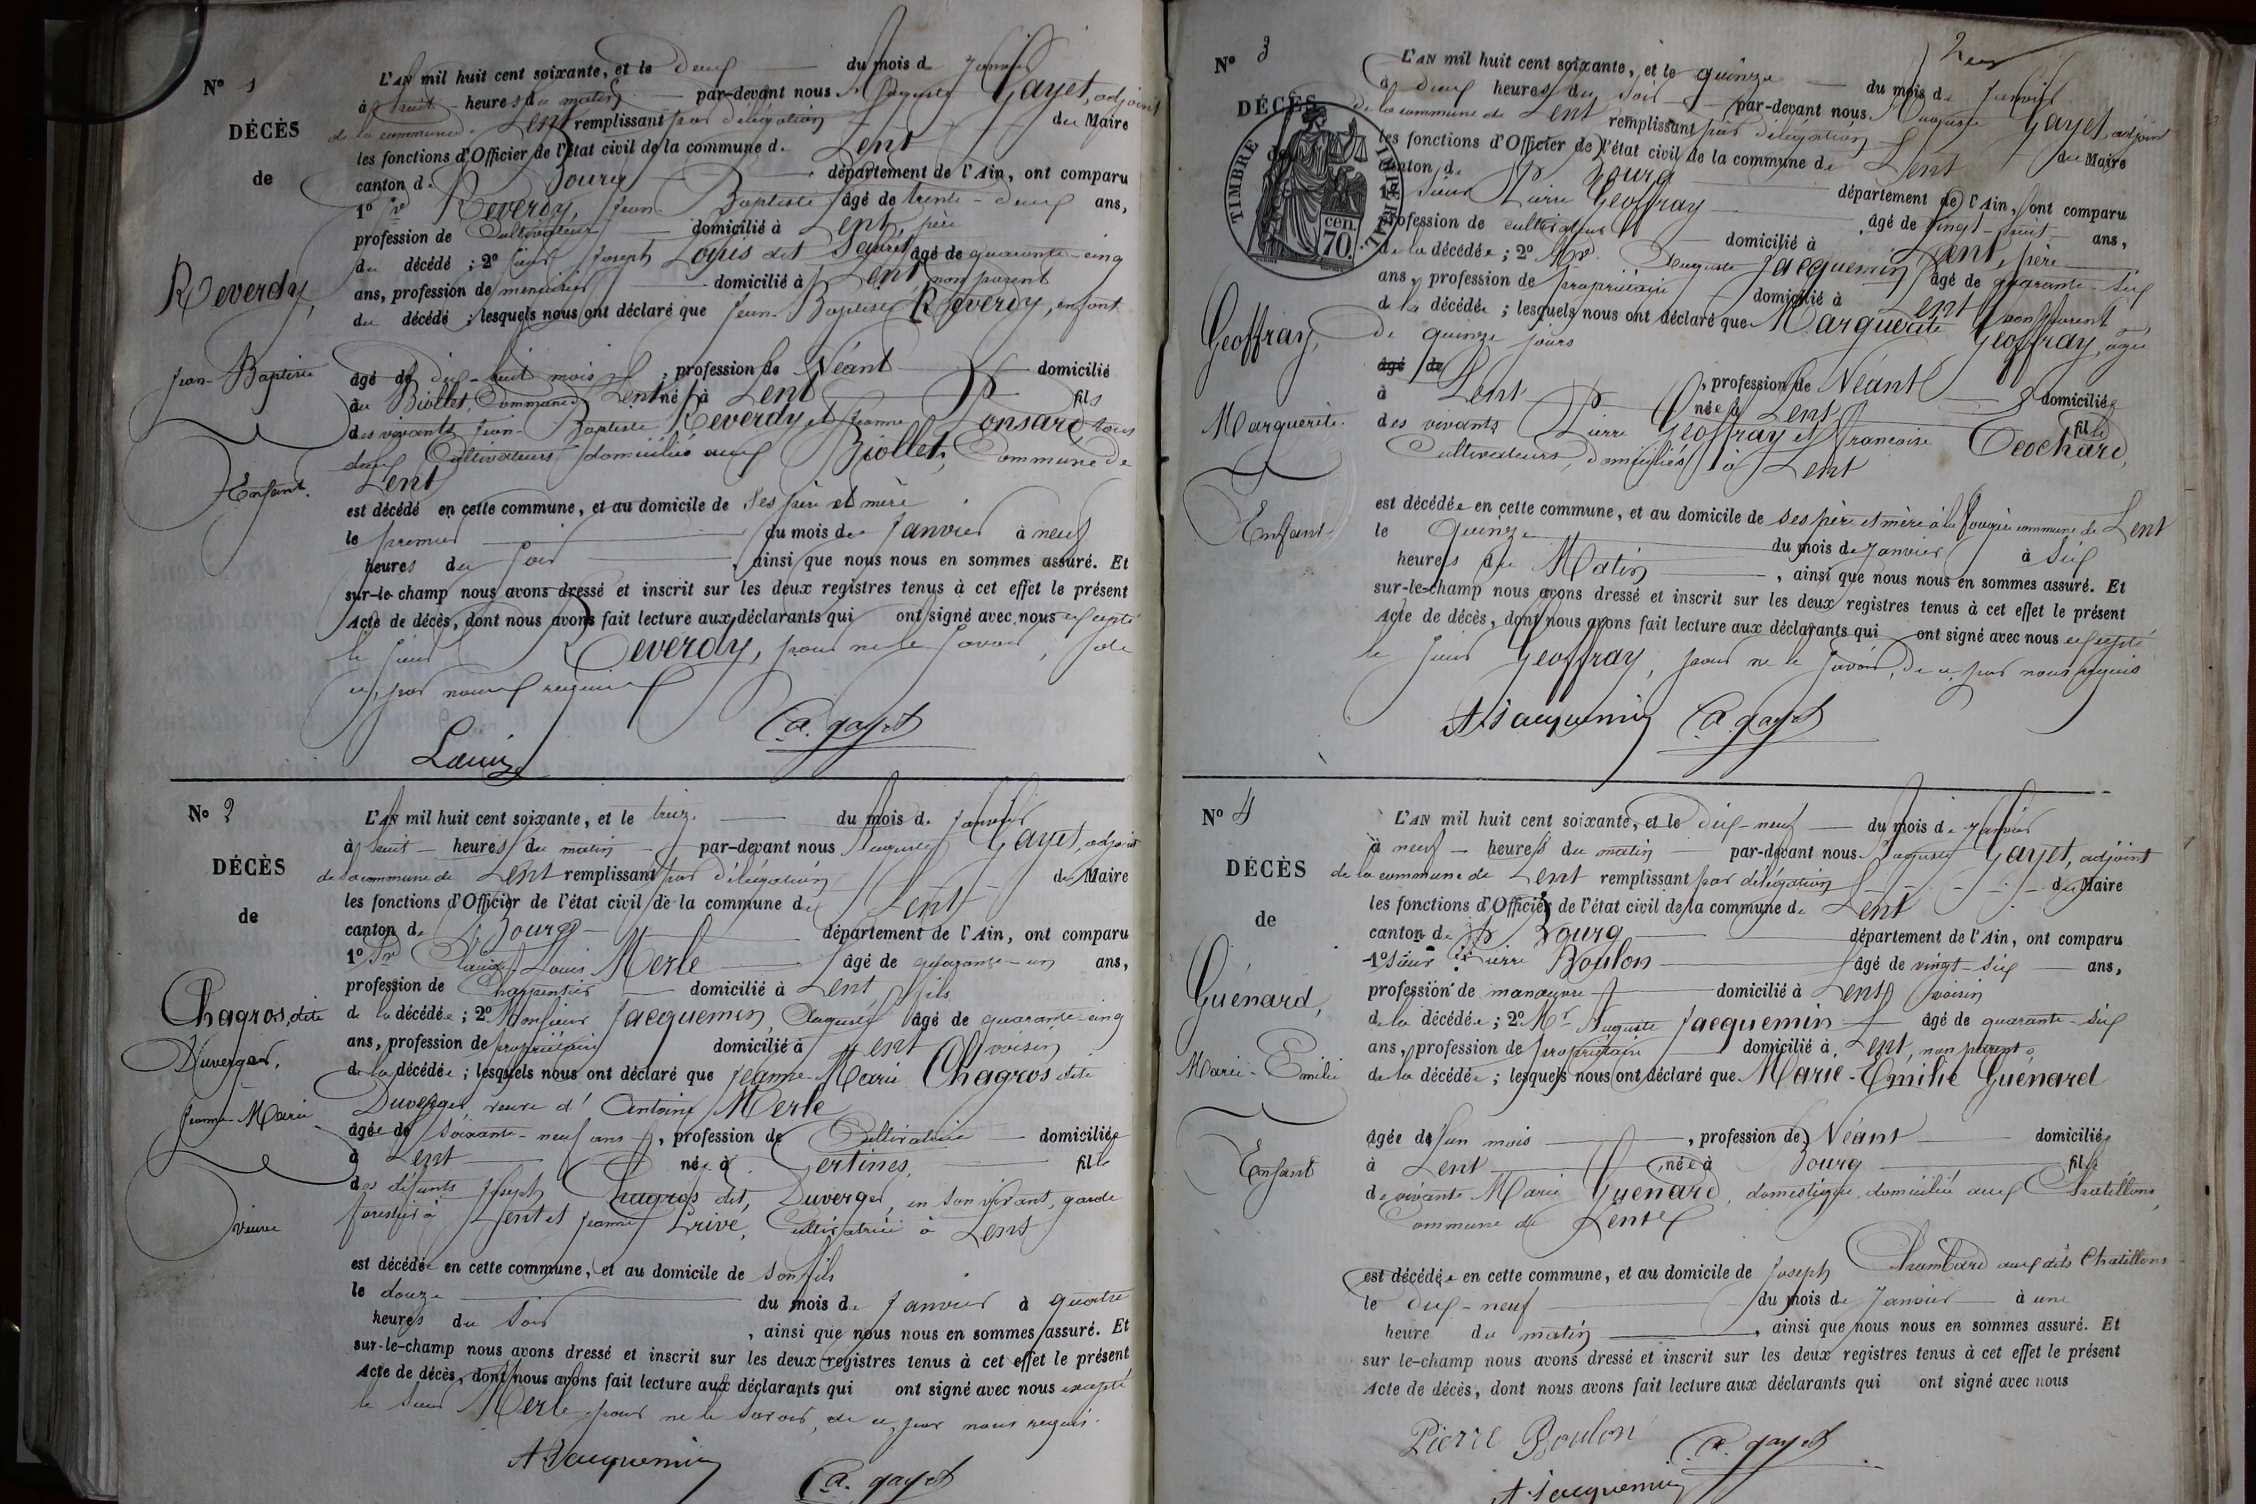 N° 1
DÉCÈS
de
Reverdy,
Jean-Baptiste
Enfant.
L'AN mil huit cent soixante, et le deux du mois de Janvier
à huit heures du matin par-devant nous Auguste Gayet, adjoint
de la commune de Lent remplissant par délégation du Maire
les fonctions d'Officier de l'état civil de la commune de Lent
canton de Bourg département de l'Ain, ont comparu
1° Sr Reverdy, Jean-Baptiste âgé de trente-deux ans,
profession de Cultivateur domicilié à Lent, père
du décédé ; 2° Sieur Joseph Louis dit âgé de quarante-cinq
ans, profession de menuisier domicilié à Lent, non parent
du décédé ; lesquels nous ont déclaré que Jean-Baptiste Reverdy, enfant
âgé de dix-huit mois, profession de Néant domicilié
au Biollet, Commune de Lent né à Lent fils
des vivants Jean-Baptiste Reverdy et Jeanne Ponsard, tous
deux Cultivateurs domiciliés aux Biollet, Commune de
Lent
est décédé en cette commune, et au domicile de ses père et mère
le premier du mois de Janvier à neuf
heures du soir, ainsi que nous nous en sommes assuré. Et
sur-le-champ nous avons dressé et inscrit sur les deux registres tenus à cet effet le présent
Acte de décès, dont nous avons fait lecture aux déclarants qui ont signé avec nous excepté
le sieur Reverdy, pour ne le savoir, de
ce, par nous requis
Louis
A. gayet
N° 2
DÉCÈS
de
Chagros, dite
Duverger,
Jeanne-Marie
Veuve
L'AN mil huit cent soixante, et le treize du mois de Janvier
à huit heures du matin par-devant nous Auguste Gayet, adjoint
de la commune de Lent remplissant par délégation du Maire
les fonctions d'Officier de l'état civil de la commune de Lent
canton de Bourg département de l'Ain, ont comparu
1° Sr Louis Merle âgé de quarante-un ans,
profession de Charpentier domicilié à Lent, fils
de la décédée ; 2° Monsieur Jacquemin, Auguste âgé de quarante-cinq
ans, profession de propriétaire domicilié à Lent voisin
de la décédée ; lesquels nous ont déclaré que Jeanne-Marie Chagros dite
Duverger, veuve d'Antoine Merle
âgée de soixante-neuf ans, profession de Cultivatrice domiciliée
à Lent née à Certines, fille
des défunts Joseph Chagros dit, Duverger, en son vivant, garde
forestier à Lent et Jeanne Privé, Cultivatrice à Lent
est décédée en cette commune, et au domicile de son fils
le douze du mois de Janvier à quatre
heures du soir, ainsi que nous nous en sommes assuré. Et
sur-le-champ nous avons dressé et inscrit sur les deux registres tenus à cet effet le présent
Acte de décès, dont nous avons fait lecture aux déclarants qui ont signé avec nous excepté
le Sieur Merle pour ne le savoir, de ce, par nous requis.
A Jacquemin
A. gayet
N° 3
DÉCÈS
de
TIMBRE IMPERIAL
cen. 70.
Geoffray,
Marguerite.
Enfant.
L'AN mil huit cent soixante, et le quinze du mois de Janvier
à deux heures du soir par-devant nous Auguste Gayet, adjoint
de la commune de Lent remplissant par délégation du Maire
les fonctions d'Officier de l'état civil de la commune de Lent
canton de Bourg département de l'Ain, ont comparu
1° Sieur Pierre Geoffray âgé de vingt-huit ans,
profession de cultivateur domicilié à Lent, père
de la décédée ; 2° Mr. Auguste Jacquemin âgé de quarante-six
ans, profession de propriétaire domicilié à Lent non parent
de la décédée ; lesquels nous ont déclaré que Marguerite Geoffray, âgée
de quinze jours
âgé de, profession de Néant domiciliée
à Lent née à Lent fille
des vivants Pierre Geoffray et Françoise Teochard,
Cultivateurs, domiciliés à Lent
est décédée en cette commune, et au domicile de ses père et mère à la commune de Lent
le Quinze du mois de Janvier à six
heures du Matin, ainsi que nous nous en sommes assuré. Et
sur-le-champ nous avons dressé et inscrit sur les deux registres tenus à cet effet le présent
Acte de décès, dont nous avons fait lecture aux déclarants qui ont signé avec nous excepté
le sieur Geoffray, pour ne le savoir, de ce, par nous requis
A. Jacquemin A. gayet
N° 4
DÉCÈS
de
Guénard,
Marie-Emilie
Enfant
L'AN mil huit cent soixante, et le dix-neuf du mois de Janvier
à neuf heures du matin par-devant nous Auguste Gayet, adjoint
de la commune de Lent remplissant par délégation du Maire
les fonctions d'Officier de l'état civil de la commune de Lent
canton de Bourg département de l'Ain, ont comparu
1° Sieur Pierre Boulon âgé de vingt-six ans,
profession de manœuvre domicilié à Lent voisin
de la décédée ; 2° Mr Auguste Jacquemin âgé de quarante-six
ans, profession de propriétaire domicilié à Lent, non parents
de la décédée ; lesquels nous ont déclaré que Marie-Emilie Guénard
âgée de un mois, profession de Néant domiciliée
à Lent née à Bourg fille
de vivante Marie Guénard, domestique, domiciliée aux Chatillons,
Commune de Lent
est décédée en cette commune, et au domicile de Joseph Chambard aux dits Chatillons
le dix-neuf du mois de Janvier à une
heure du matin, ainsi que nous nous en sommes assuré. Et
sur le-champ nous avons dressé et inscrit sur les deux registres tenus à cet effet le présent
Acte de décès, dont nous avons fait lecture aux déclarants qui ont signé avec nous
Pierre Boulon A. gayet
A. Jacquemin